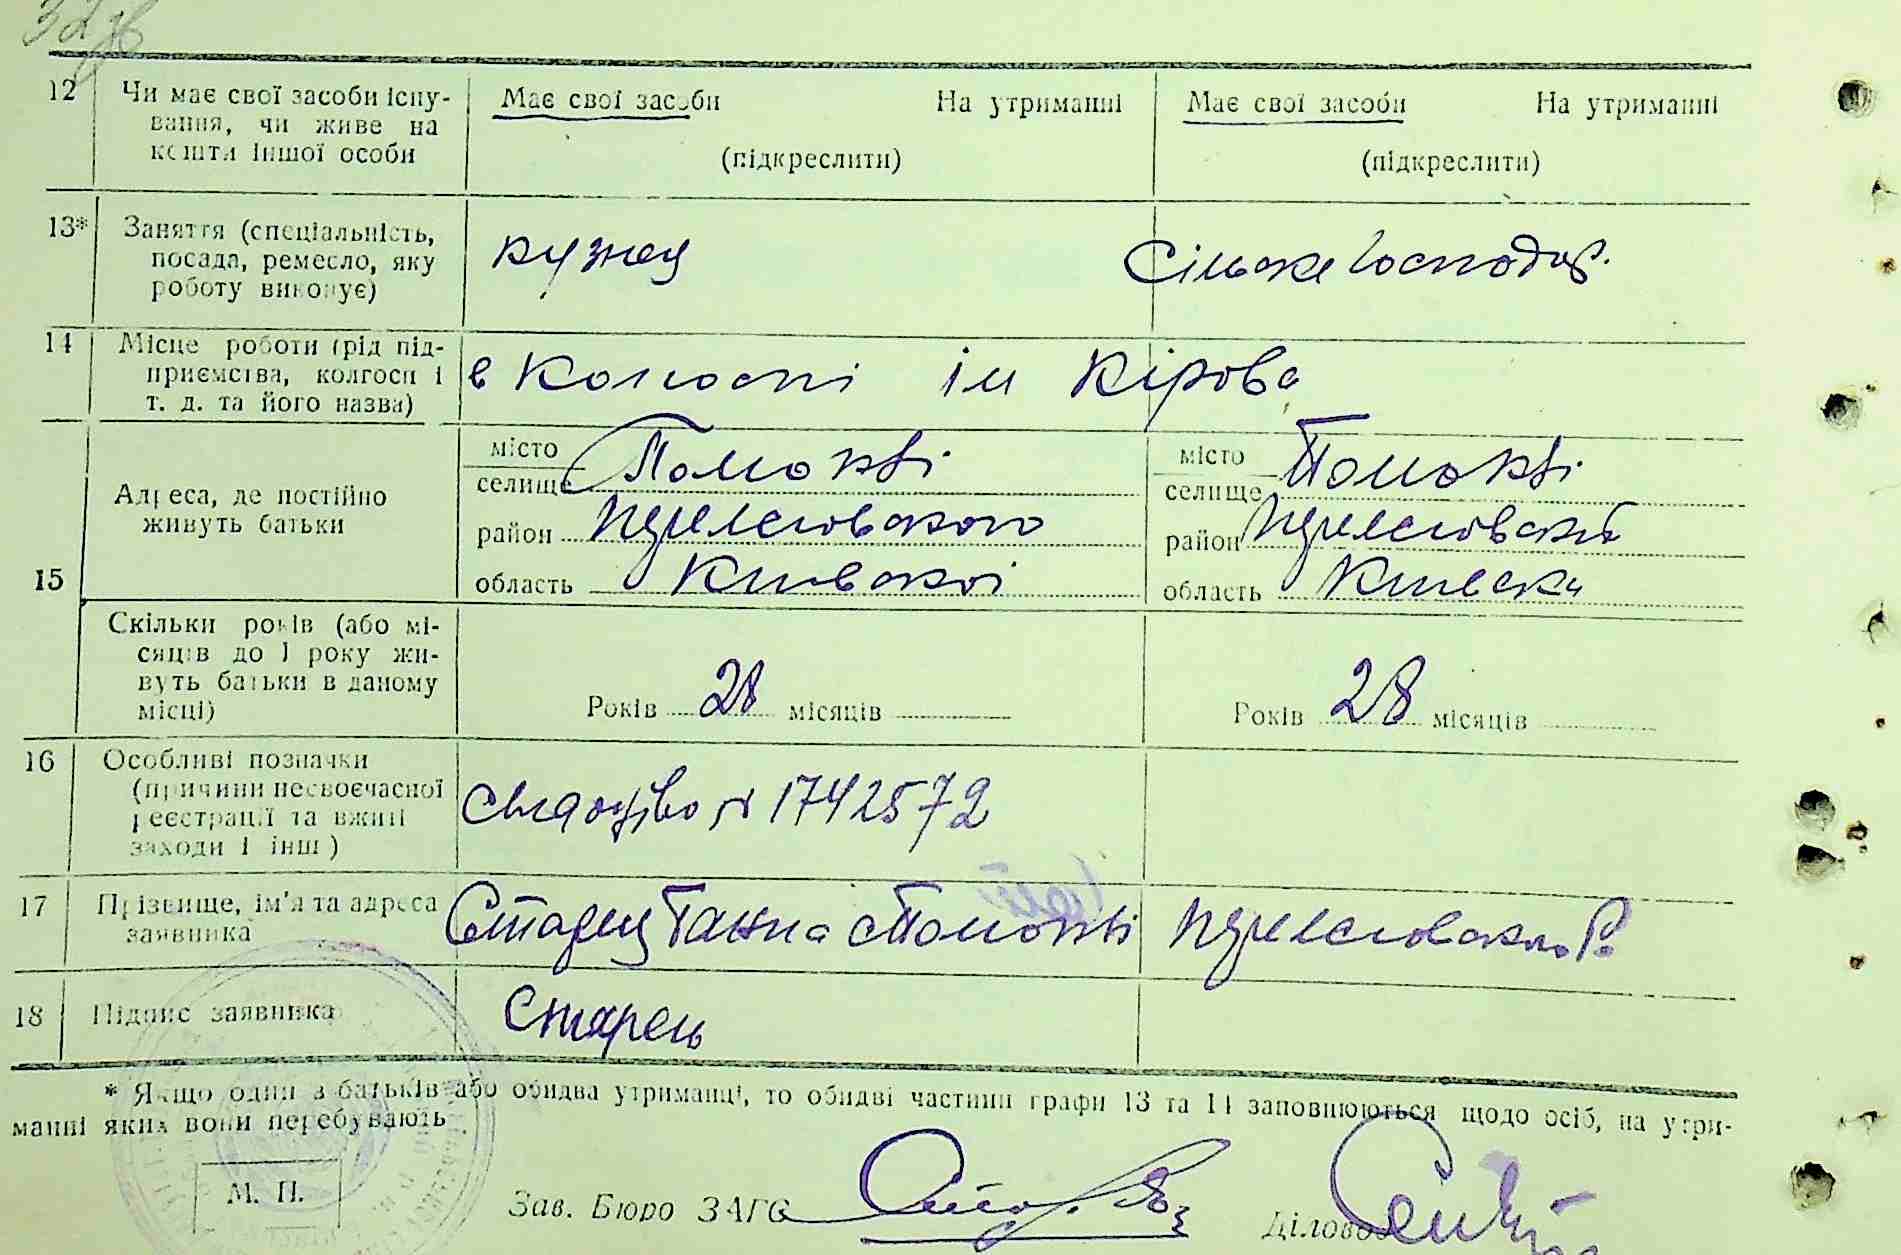 12 Чи має свої засоби існу-
вання, чи живе на
кошти іншої особи
Має свої засоби На утриманні
(підкреслити)
Має свої засоби На утриманні
(підкреслити)
13* Заняття (спеціальність,
посада, ремесло, яку
роботу виконує)
кузнец
Сільське господар.
14 Місце роботи (рід під-
приємства, колгосп і
т. д. та його назва)
в колгоспі ім Кірова
15 Адреса, де постійно
живуть батьки
місто
селище Помоклі
район
область Київської
місто
селище Помоклі
район
область
Скільки років (або мі-
сяців до 1 року жи-
вуть батьки в даному
місці)
Років 28 місяців
Років 28 місяців
16 Особливі позначки
(причини несвоєчасної
реєстрації та вжиті
заходи і інш)
№ 1742572
17 Прізвище, ім'я та адреса
заявника
Старец Ганна с Помоклі
18 Підпис заявника
Старець
* Якщо один з батьків або обидва утриманці, то обидві частини графи 13 та 14 заповнюються щодо осіб, на утри-
манні яких вони перебувають.
М. П.
Зав. Бюро ЗАГС
Діловод